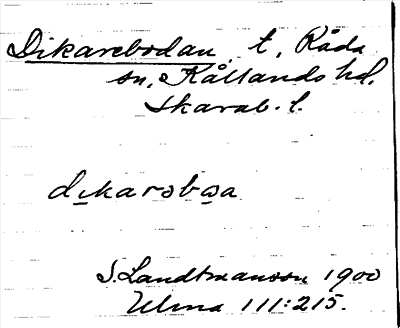 Dikarebodan, t, Råda
sn, Kållands hd.
Skarab. l.
dıkarəbǫa
S. Landtmanson 1900
Ulma 111:215.